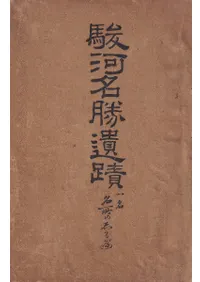 駿河名勝遺蹟
一名